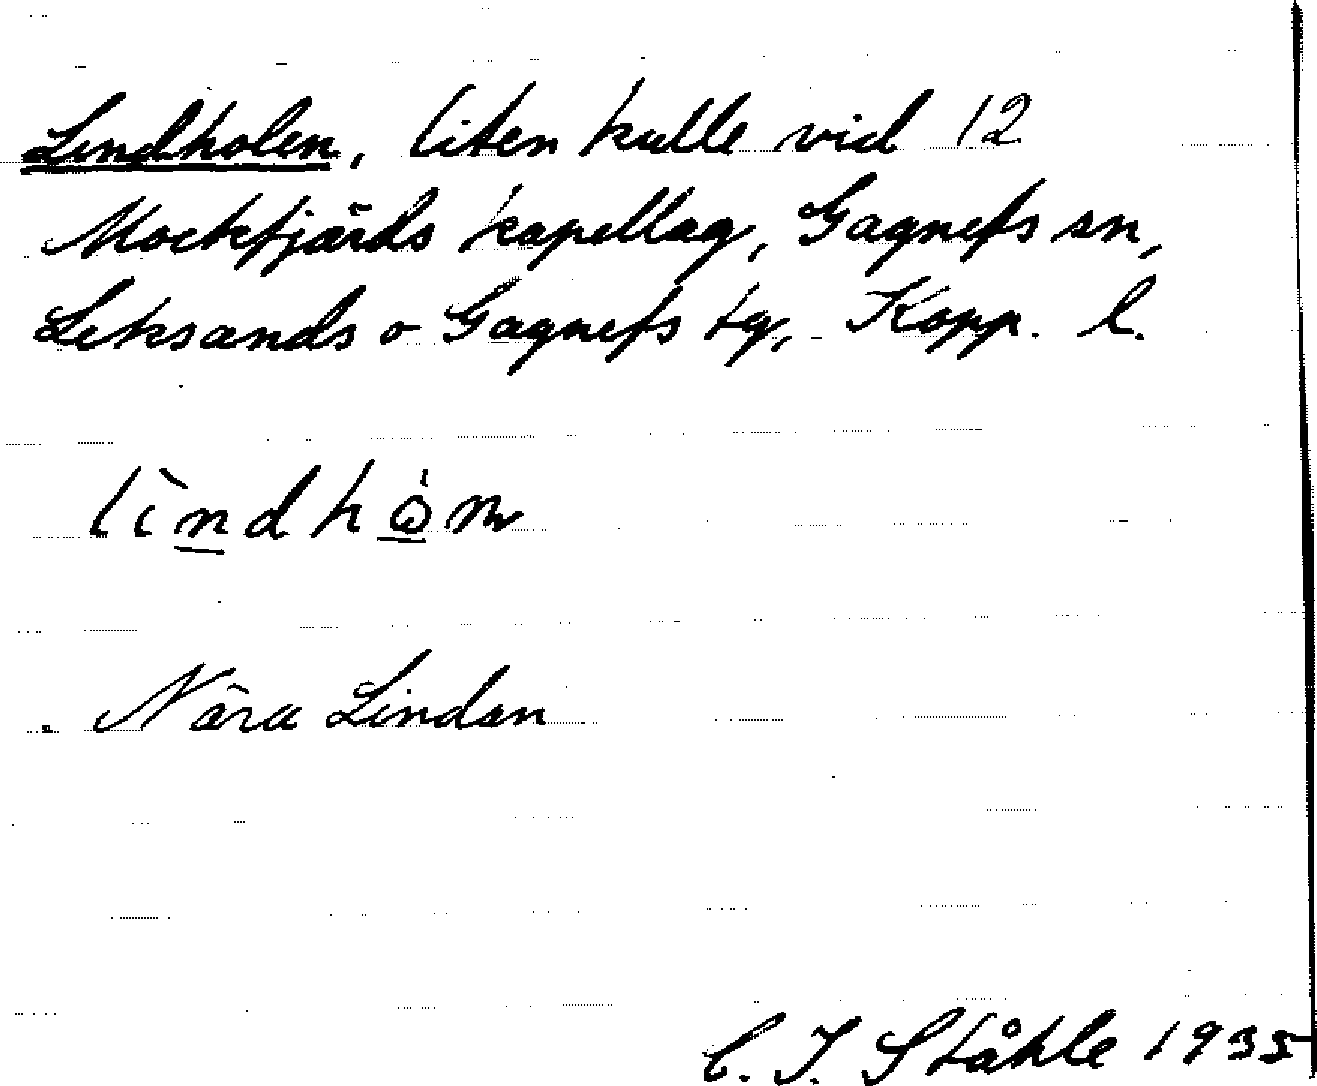 Lindholen, liten kulle vid 12
Mockfjärds kapellag, Gagnefs sn,
Leksands o Gagnefs tg, Kopp. l.
lìndhòm
Nära Lindan
C. I. Ståhle 1935